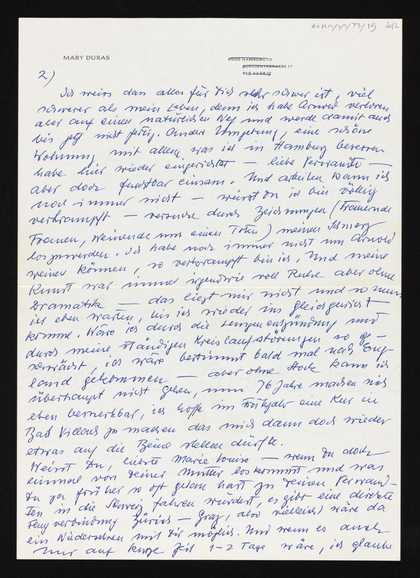 MARY DURAS
2)
Ich weiss das alles für Dich sehr schwer ist, viel
schwerer als mein Leben, denn ich habe Arnold verloren
aber auf einen natürlichen Weg und werde damit auch
bis jetzt nicht fertig. Andere Umgebung, eine schöne
Wohnung mit allem was ich in Hamburg besessen
habe hier wieder eingerichtet — liebe Verwandte —
aber doch furchtbar einsam. Und arbeiten kann ich
noch immer nicht — weisst Du ich bin völlig
verkrampft — versuche durch Zeichnungen (Träumende
Frauen, Weinende um einen Toten) meinen Schmerz
loszuwerden. Ich habe noch immer nicht um Arnold
weinen können, so verkrampft bin ich. Und meine
Kunst war immer irgendwie voll Ruhe aber ohne
Dramatik — das liegt mir nicht und so muss
ich eben warten, bis ich wieder ins Gleichgewicht
komme. Wäre ich durch die Lungenentzündung und
durch meine ständigen Kreislaufstörungen so ge-
schwächt, ich wäre bestimmt bald mal nach Eng-
land gekommen — aber ohne Stock kann ich
überhaupt nicht gehen, nun 76 Jahre machen sich
eben bemerkbar, ich hoffe im Frühjahr eine Kur in
Bad Villach zu machen das mich dann doch wieder
etwas auf die Beine stellen dürfte.
Weisst Du, liebste Marie Louise — wenn Du doch
einmal von Deiner Mutter loskommst und was
Du ja früher so oft getan hast zu Deinen Verwand-
ten in die Schweiz fahren würdest, es gibt eine direkte
Flugverbindung Zürich — Graz, also vielleicht wäre da
ein Wiedersehen mit Dir möglich. Und wenn es auch
nur auf kurze Zeit 1-2 Tage wäre, ich glaube